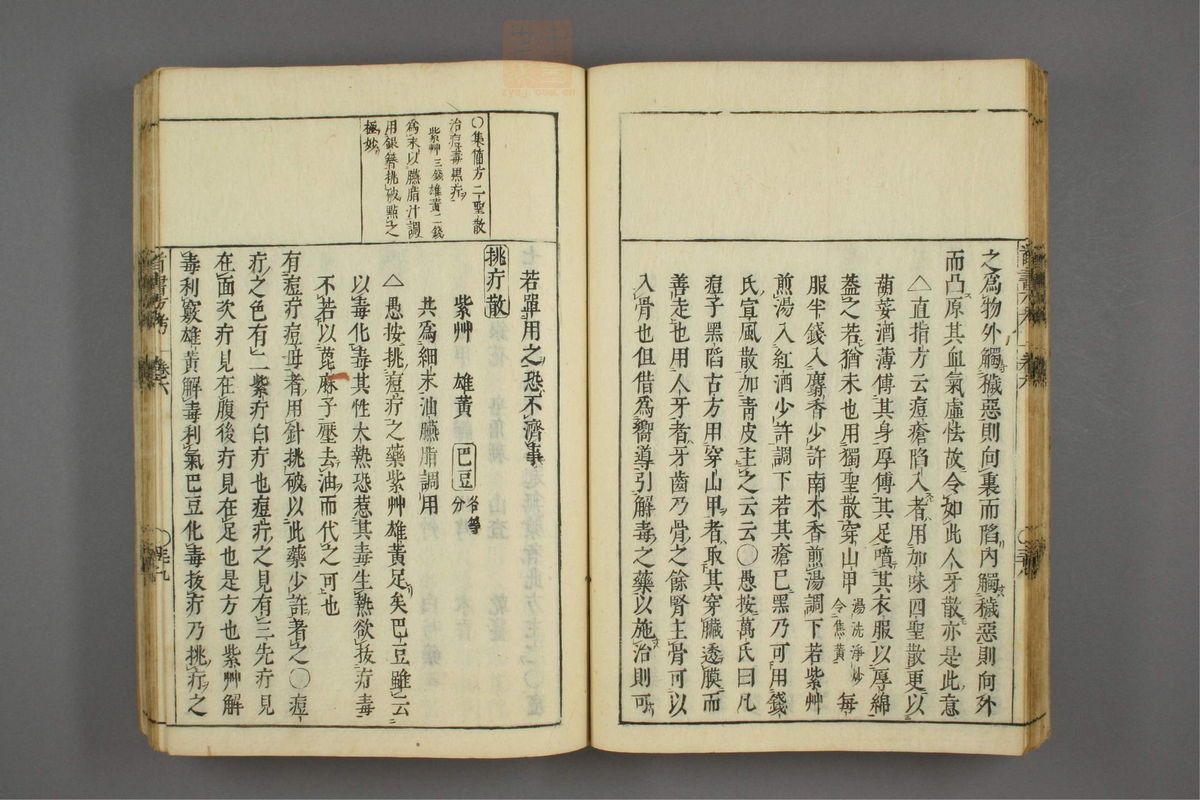 之爲物外觸穢惡則向裏而陷內觸穢惡則向外
而凸原其血氣虛怯故令如此人牙散亦是此意
△直指方云痘瘡陷入者用加味四聖散更以
葫荽酒薄傅其身厚傅其足噴其衣服以厚綿
蓋之若猶未也用獨聖散穿山甲湯洗淨炒令焦黃每
服半錢入麝香少許南木香煎湯調下若紫艸
煎湯入紅酒少許調下若其瘡已黑乃可用錢
氏宣風散加青皮主之云云〇愚按萬氏曰凡
痘子黑陷古方用穿山甲者取其穿臟透膜而
善走也用人牙者牙齒乃骨之餘腎主骨可以
入骨也但借爲嚮導引解毒之藥以施治則可
首書方考
卷六
〇集備方二聖散
治痘毒黒疔
紫艸三錢雄黃二錢
爲末以臙脂汁調
用銀簪挑破點之
極妙
若單用之恐不濟事
挑疔散
紫艸 雄黃 巴豆各等分
共爲細末油臙脂調用
△愚按挑痘疔之藥紫艸雄黃足矣巴豆雖云
以毒化毒其性太熱恐惹其毒生熱欲拔疔毒
不若以萆麻子壓去油而代之可也
有痘疔痘毋者用針挑破以此藥少許著之〇痘
疔之色有二紫疔白疔也痘疔之見有三先疔見
在面次疔見在腹後疔見在足也是方也紫艸解
毒利竅雄黃解毒利氣巴豆化毒拔疔乃挑疔之
首書方考
卷六